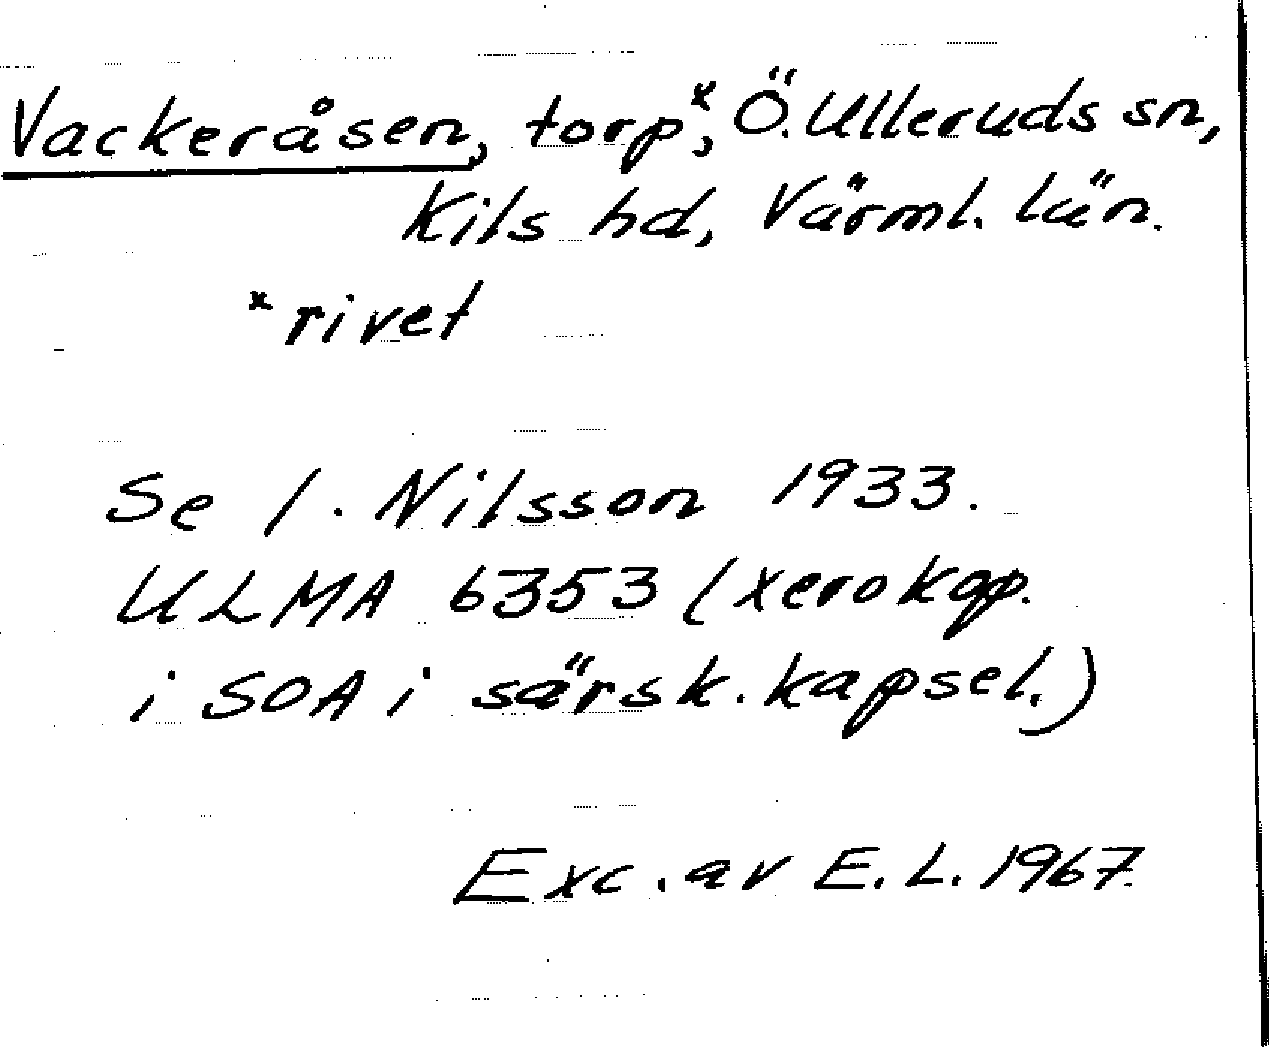 Vackeråsen, torp*, Ö. Ulleruds sn,
Kils hd, Värml. län.
* rivet
Se I. Nilsson 1933.
ULMA 6353 (xerokop.
i SOA i särsk. kapsel.)
Exc. av E. L. 1967.